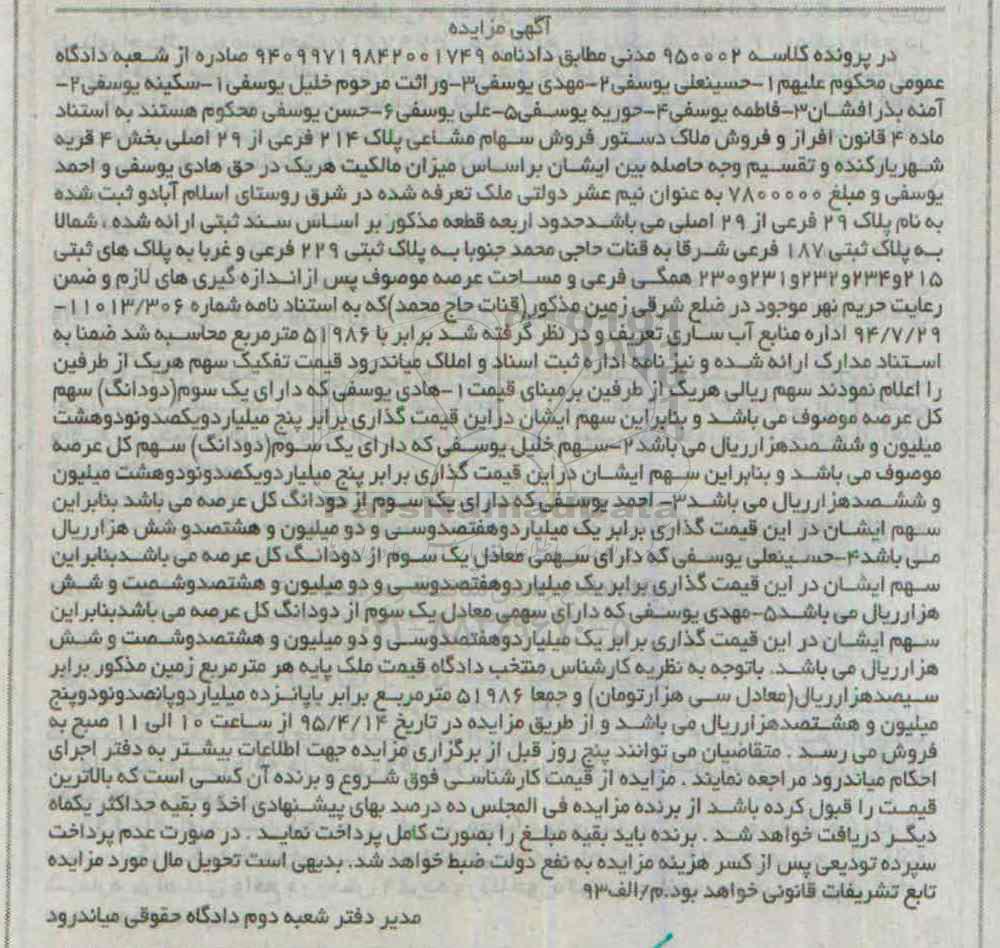 آگهی مزایده
در پرونده کلاسه ۹۵۰۰۰۲ مدنی مطابق دادنامه ۹۴۰۹۹۷۱۹۸۴۲۰۰۱۷۴۹ صادره از شعبه دادگاه
عمومی محکوم علیهم ۱-حسینعلی یوسفی ۲-مهدی یوسفی۳-وراثت مرحوم خلیل یوسفی ۱-سکینه یوسفی۲-
آمنه بذرافشان۳-فاطمه یوسفی۴-حوریه یوسفی۵-علی یوسفی ۶-حسن یوسفی محکوم هستند به استناد
ماده ۴ قانون افراز و فروش ملاک دستور فروش سهام مشاعی پلاک ۲۱۴ فرعی از ۲۹ اصلی بخش ۴ قریه
شهریارکنده و تقسیم وجه حاصله بین ایشان براساس میزان مالکیت هریک در حق هادی یوسفی و احمد
یوسفی و مبلغ ۷۸۰۰۰۰۰ به عنوان نیم عشر دولتی ملک تعرفه شده در شرق روستای اسلام آبادو ثبت شده
به نام پلاک ۲۹ فرعی از ۲۹ اصلی می باشدحدود اربعه قطعه مذکور بر اساس سند ثبتی ارائه شده ، شمالا
به پلاک ثبتی ۱۸۷ فرعی شرقا به قنات حاجی محمد جنوبا به پلاک ثبتی ۲۲۹ فرعی و غربا به پلاک های ثبتی
۲۱۵و۲۳۴و۲۳۲و۲۳۱و۲۳۰ همگی فرعی و مساحت عرصه موصوف پس ازاندازه گیری های لازم و ضمن
رعایت حریم نهر موجود در ضلع شرقی زمین مذکور(قنات حاج محمد)که به استناد نامه شماره ۱۱۰۱۳/۳۰۶-
۹۴/۷/۲۹ اداره منابع آب ساری تعریف و در نظر گرفته شد برابر با ۵۱۹۸۶ مترمربع محاسبه شد ضمنا به
استناد مدارک ارائه شده و نیز نامه اداره ثبت اسناد و املاک میاندرود قیمت تفکیک سهم هریک از طرفین
را اعلام نمودند سهم ریالی هریک از طرفین برمبنای قیمت۱-هادی یوسفی که دارای یک سوم(دودانگ) سهم
کل عرصه موصوف می باشد و بنابراین سهم ایشان دراین قیمت گذاری برابر پنج میلیاردویکصدونودوهشت
میلیون و ششصدهزارریال می باشد۲-سهم خلیل یوسفی که دارای یک سوم(دودانگ) سهم کل عرصه
موصوف می باشد و بنابراین سهم ایشان دراین قیمت گذاری برابر پنج میلیاردویکصدونودوهشت میلیون
و ششصدهزارریال می باشد۳- احمد یوسفی که دارای یک سوم از دودانگ کل عرصه می باشد بنابراین
سهم ایشان در این قیمت گذاری برابر یک میلیاردوهفتصدوسی و دو میلیون و هشتصدو شش هزارریال
می باشد۴-حسینعلی یوسفی که دارای سهمی معادل یک سوم از دودانگ کل عرصه می باشدبنابراین
سهم ایشان در این قیمت گذاری برابر یک میلیاردوهفتصدوسی و دو میلیون و هشتصدوشصت و شش
هزارریال می باشد۵-مهدی یوسفی که دارای سهمی معادل یک سوم از دودانگ کل عرصه می باشدبنابراین
سهم ایشان در این قیمت گذاری برابر یک میلیاردوهفتصدوسی و دو میلیون و هشتصدوشصت و شش
هزارریال می باشد. باتوجه به نظریه کارشناس منتخب دادگاه قیمت ملک پایه هر مترمربع زمین مذکور برابر
سیصدهزارریال(معادل سی هزارتومان) و جمعا ۵۱۹۸۶ مترمربع برابر باپانزده میلیاردوپانصدونودوپنج
میلیون و هشتصدهزارریال می باشد و از طریق مزایده در تاریخ ۹۵/۴/۱۴ از ساعت ۱۰ الی ۱۱ صبح به
فروش می رسد . متقاضیان می توانند پنج روز قبل از برگزاری مزایده جهت اطلاعات بیشتر به دفتر اجرای
احکام میاندرود مراجعه نمایند . مزایده از قیمت کارشناسی فوق شروع و برنده آن کسی است که بالاترین
قیمت را قبول کرده باشد از برنده مزایده فی المجلس ده درصد بهای پیشنهادی اخذ و بقیه حداکثر یکماه
دیگر دریافت خواهد شد . برنده باید بقیه مبلغ را بصورت کامل پرداخت نماید . در صورت عدم پرداخت
سپرده تودیعی پس از کسر هزینه مزایده به نفع دولت ضبط خواهد شد. بدیهی است تحویل مال مورد مزایده
تابع تشریفات قانونی خواهد بود.م/الف۹۳
مدیر دفتر شعبه دوم دادگاه حقوقی میاندرود